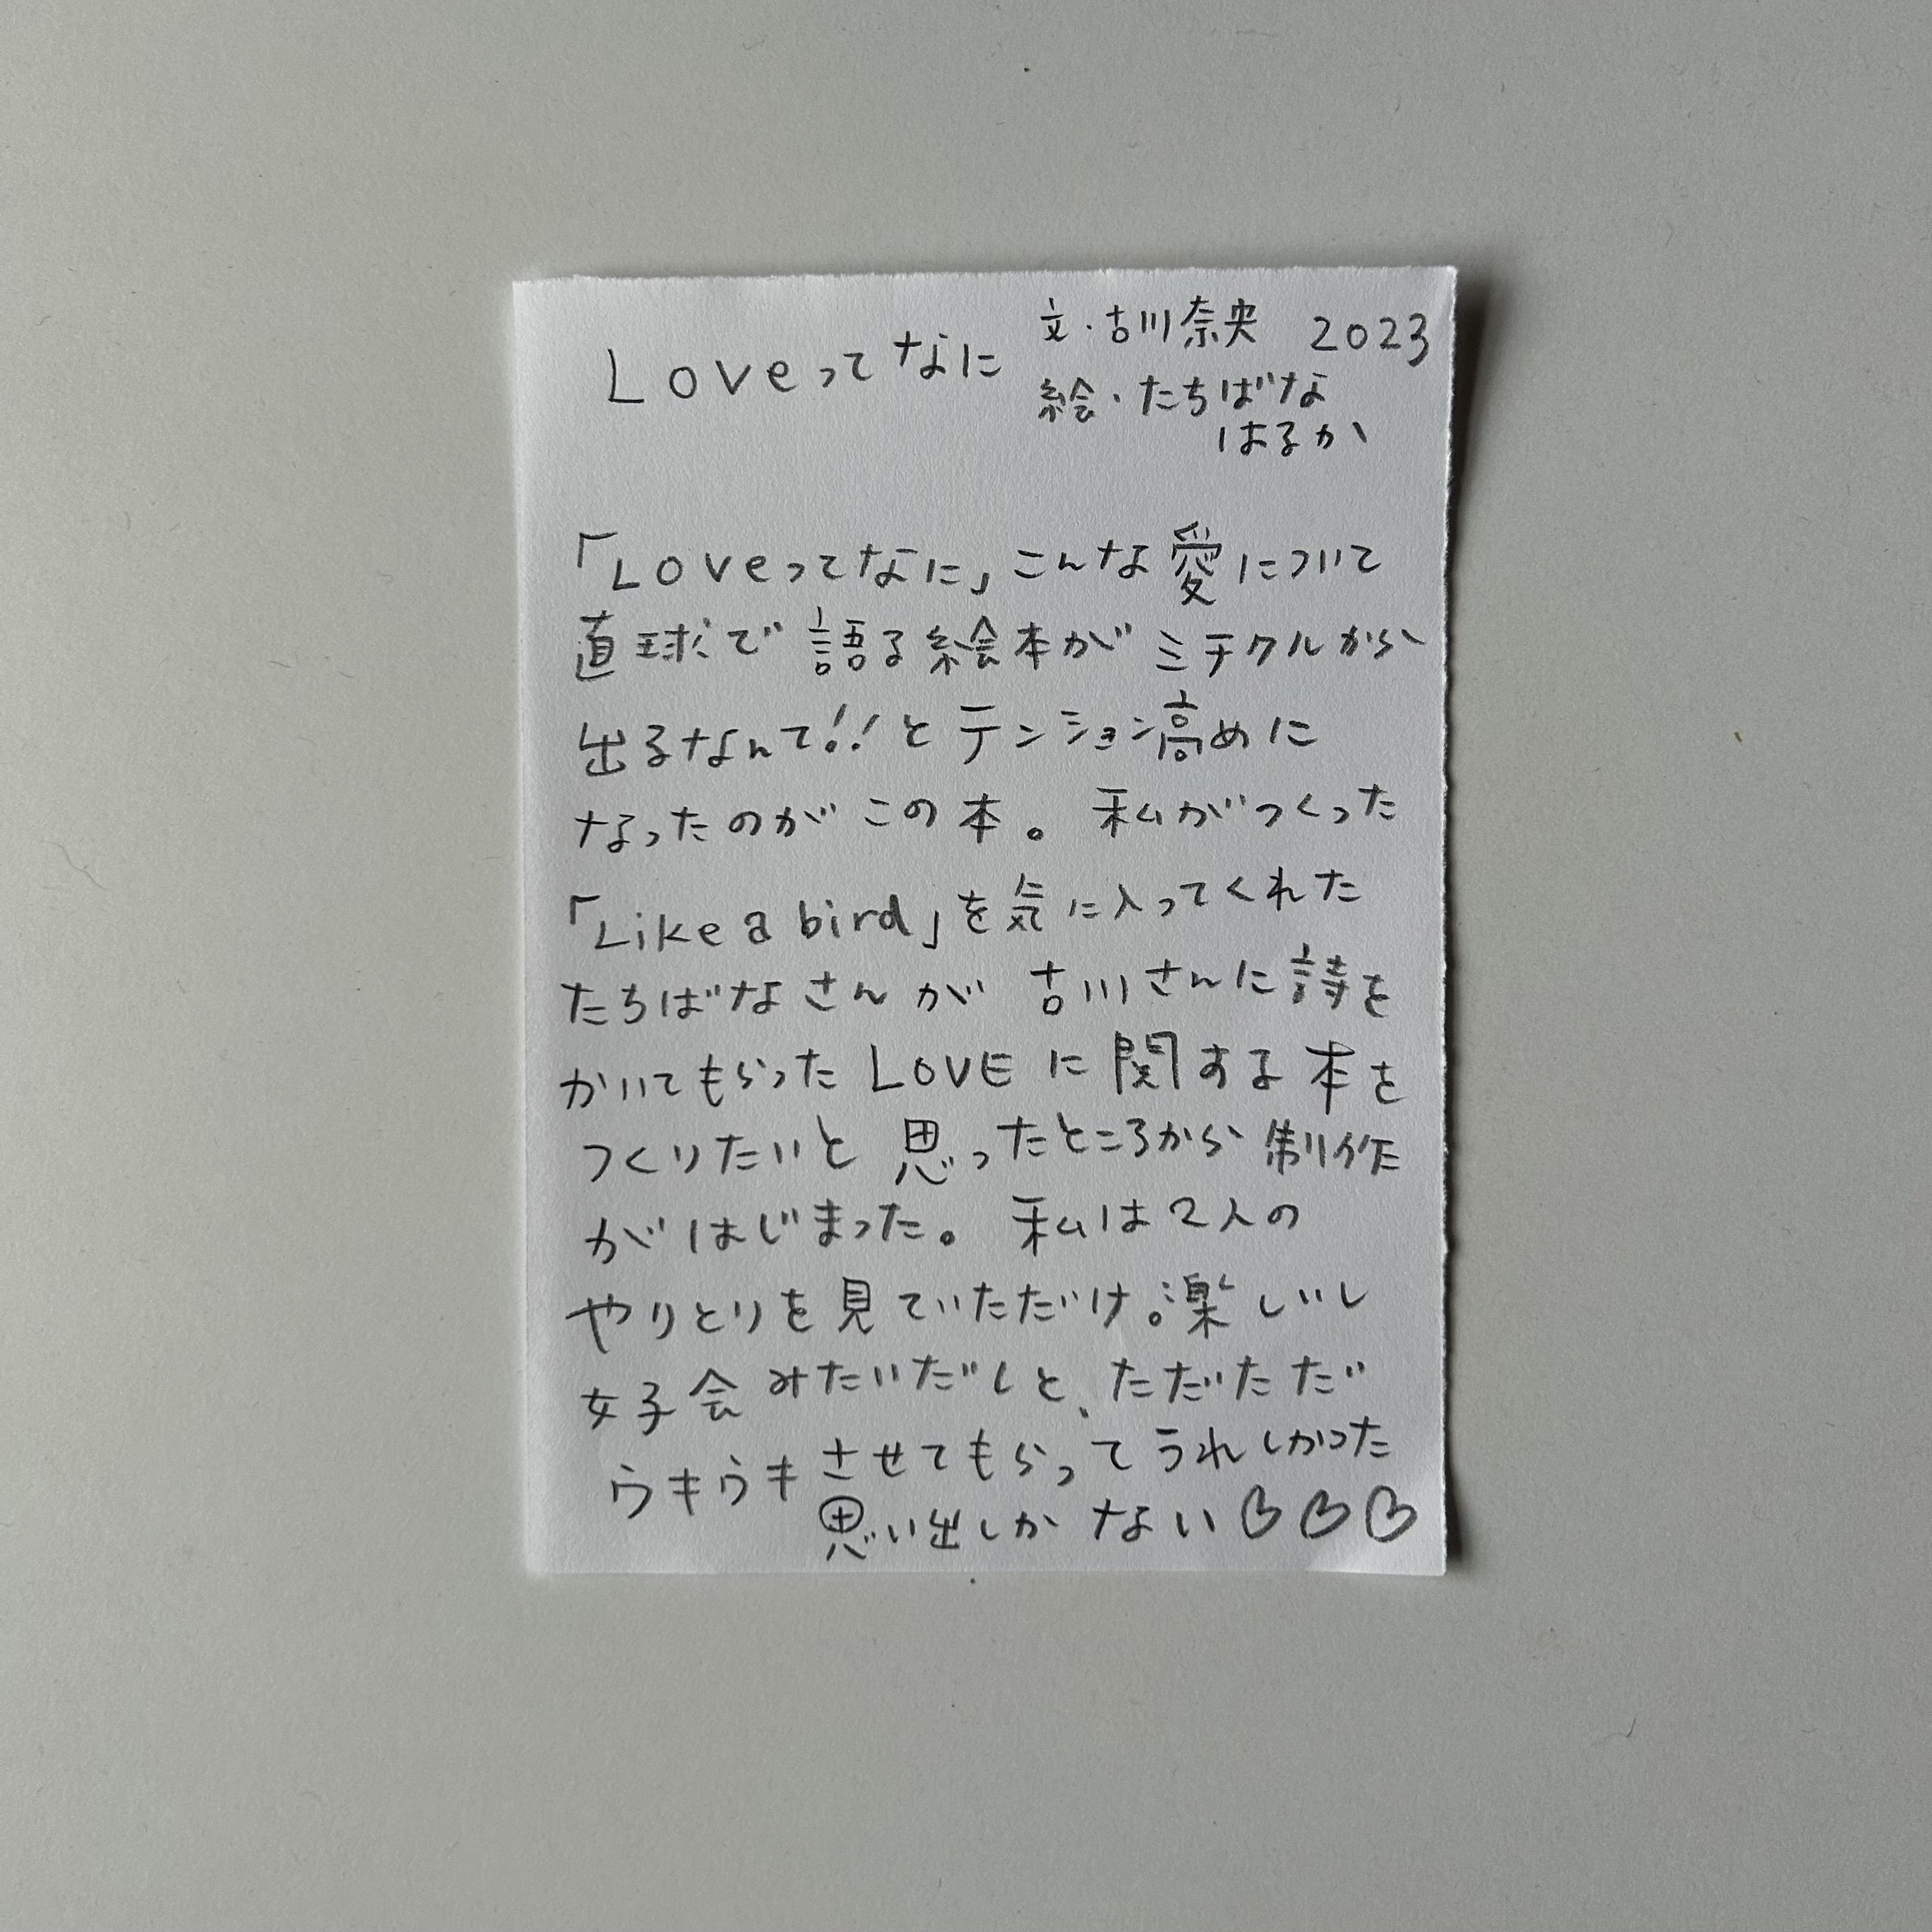 Loveってなに 文・古川奈央 2023
絵・たちばな
はるか
「Loveってなに」こんな愛について
直球で語る絵本がミチクルから
出るなんて!!とテンション高めに
なったのがこの本。私がつくった
「Like a bird」を気に入ってくれた
たちばなさんが古川さんに詩を
かいてもらったLOVEに関する本を
つくりたいと思ったところから制作
がはじまった。私は2人の
やりとりを見ていただけ。楽しいし
女子会みたいだしと、ただただ
ウキウキさせてもらってうれしかった
思い出しかない♡♡♡